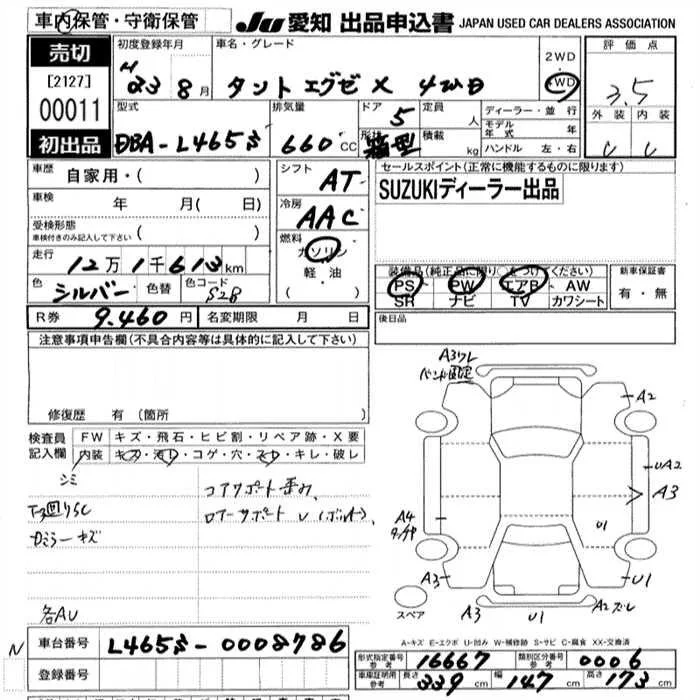 車内保管・守衛保管
JU 愛知 出品申込書 JAPAN USED CAR DEALERS ASSOCIATION
売切
[2127]
00011
初出品
初度登録年月
H 23 8月
車名・グレード
タント エグゼ X 4WD
2WD
4WD
評価点
3.5
外装 内装
C C
型式
DBA-L465S
排気量
660 CC
ドア 5
形状 箱型
定員 人
積載 kg
ディーラー・並行
モデル年式 年
ハンドル 左・右
車歴 自家用・( )
車検 年 月( 日)
受検形態
車検付きのみ記入して下さい ( )
走行
12万1千613km
色 シルバー 色替 色コード S28
シフト AT
冷房 AAC
燃料
ガソリン
軽・油
( ・ )
セールスポイント(正常に機能するものに限ります)
SUZUKIディーラー出品
装備品(純正品に限り○をつけてください)
PS PW エアB AW
SR ナビ TV カワシート
新車保証書
有・無
R券 9.460円 名変期限 月 日
後日品
注意事項申告欄(不具合内容等は具体的に記入して下さい)
修復歴 有 (箇所
検査員記入欄
FW キズ・飛石・ヒビ割・リペア跡・X要
内装 キズ・汚レ・コゲ・穴・スレ・キレ・破レ
シミ
コアサポート歪み、
ロアーサポートU(ボルト)、
各AU
A3ワレ
A2
UA2
A3
U1
A4
A3
U1
スペア
A3
U1
A2ズレ
N
車台番号 L465S-0008786
登録番号
A-キズ E-エクボ U-凹み W-補修跡 S-サビ C-腐食 XX-交換済
形式指定番号 参考 16667 類別区分番号 参考 0006
車庫証明用 参考 長さ 339cm 幅 147cm 高さ 173cm